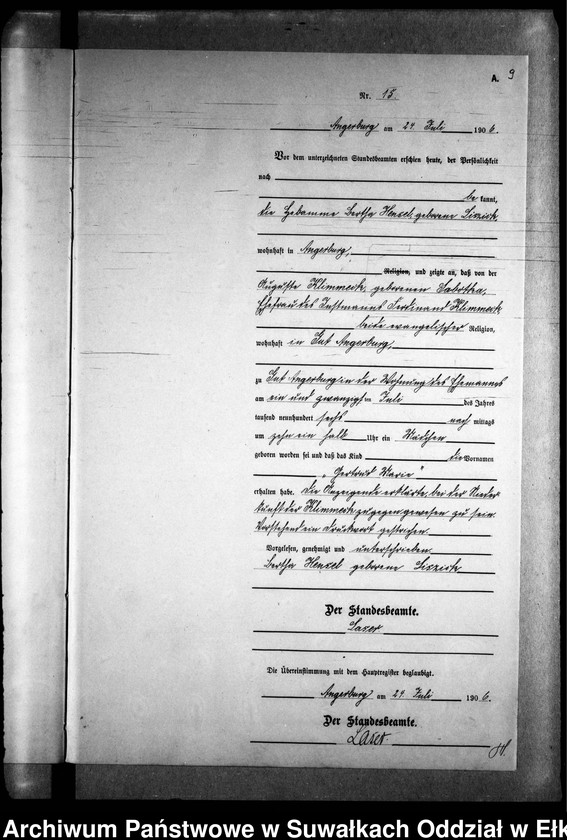 A. 9
Nr. 15.
Angerburg am 24 Juli 1906.
Vor dem unterzeichneten Standesbeamten erschien heute, der Persönlichkeit
nach
be kannt,
die Hebamme Bertha Hensel, geborene
wohnhaft in Angerburg,
Religion, und zeigte an, daß von der
Auguste Klimmeck, geborenen Sabottka,
Ehefrau des Instmanns Ferdinand Klimmeck
beide evangelischer Religion,
wohnhaft in Gut Angerburg,
zu Gut Angerburg in der Wohnung des Ehemanns
am ein und zwanzigsten Juli des Jahres
tausend neunhundert sechs nach mittags
um zehn ein halb Uhr ein Mädchen
geboren worden sei und daß das Kind die Vornamen
„Gertrud Marie"
erhalten habe. Die Anzeigende erklärte, bei der Nieder
kunft der Klimmeck zugegen gewesen zu sein.
Vorstehend ein Druckwort gestrichen.
Vorgelesen, genehmigt und unterschrieben.
Bertha Hensel geborene
Der Standesbeamte.
Die Übereinstimmung mit dem Hauptregister beglaubigt.
Angerburg am 24. Juli 1906.
Der Standesbeamte.
Archiwum Państwowe w Suwałkach Oddział w Ełk